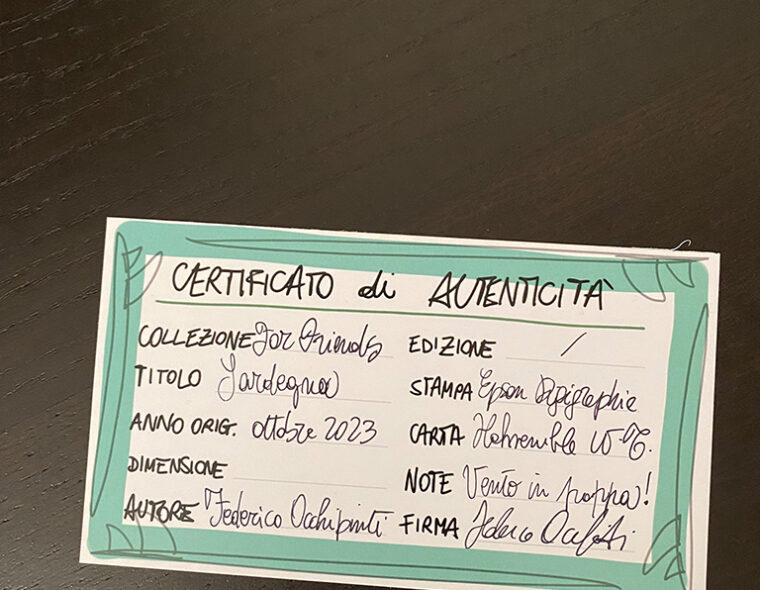 CERTIFICATO di AUTENTICITÀ
COLLEZIONE For Friends
TITOLO Sardegna
ANNO ORIG. ottobre 2023
DIMENSIONE
AUTORE Federico Occhipinti
EDIZIONE /
STAMPA Epson Digigraphie
CARTA
NOTE Vento in poppa!
FIRMA